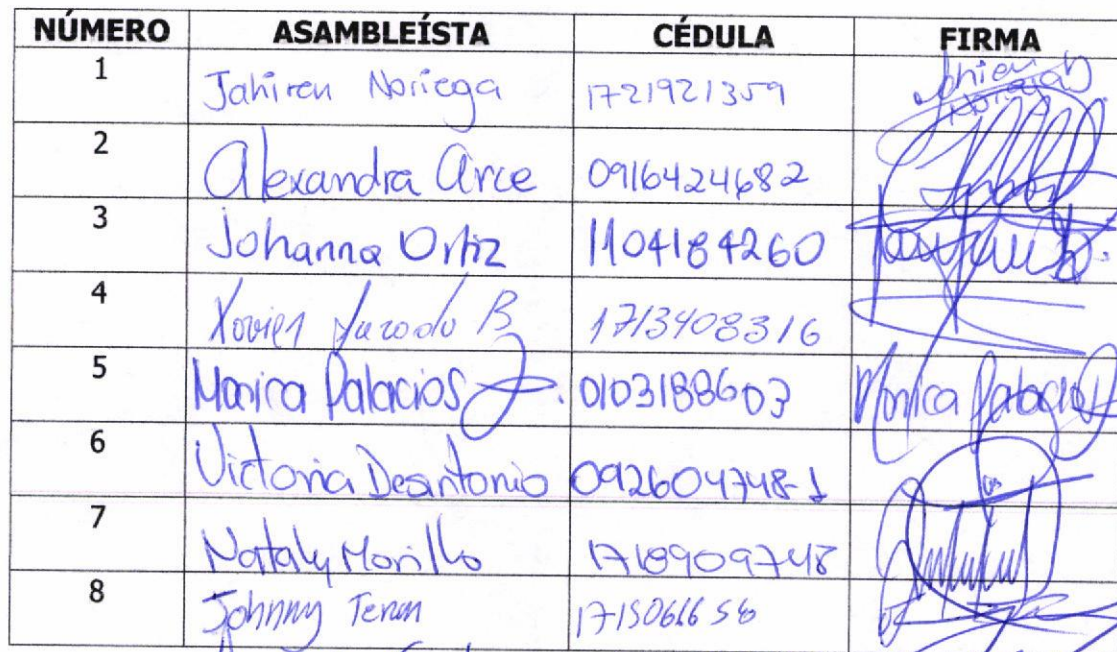 NÚMERO ASAMBLEÍSTA CÉDULA FIRMA
1 Jahiren Noriega 1721921359
2 Alexandra Arce 0916424682
3 Johanna Ortiz 1104184260
4 Xavier Jurado B 1713408316
5 Monica Palacios 0103188603 Monica Palacios
6 Victoria Desintonio 092604748-1
7 Nataly Morillo 1718909748
8 Johnny Teran